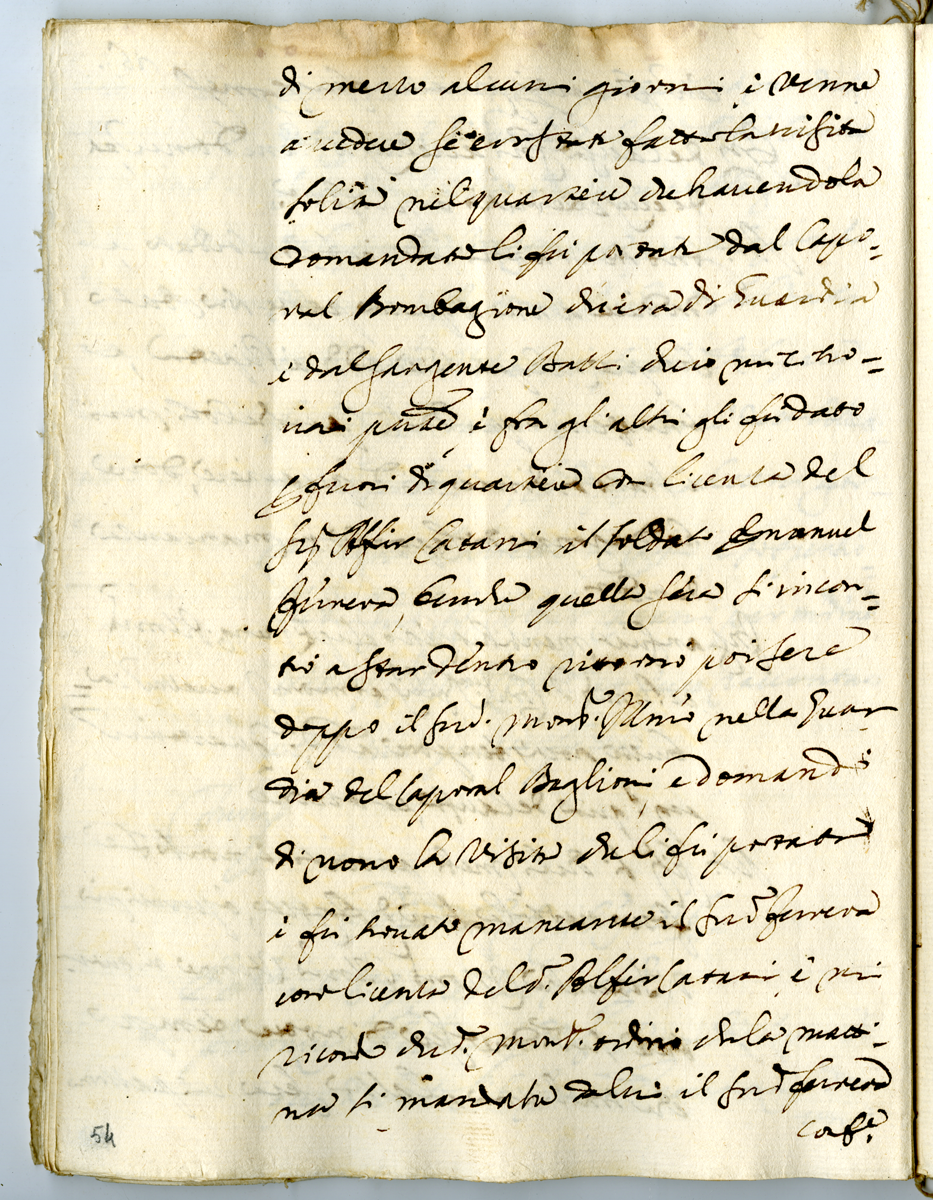 di mezzo alcuni giorni, e venne
a vedere se era stata fatta la visita
solita nel quartiere che havendola
domandata li fu portata dal Capo=
ral Bombagione che era di Guardia
e dal Sargente Batti che io mi ci tro=
vai pure, e fra gl'altri gli fu dato
fuori di quartiere con licenza del
Sig. Alfier Catani il soldato Emanuel
Ferrera, quella sera si incon=
trò a star dentro ritornò poi sere
doppo il sud. nella Guar
dia del Caporal Baglioni, e domandò
di novo la visita che li fu portata
e fu trovato mancante il sud. Ferrera
con licenza del d. Alfier Catani, e mi
ricordo che d. ordinò che la matti=
na si mandate da lui il sud. Ferrera
54